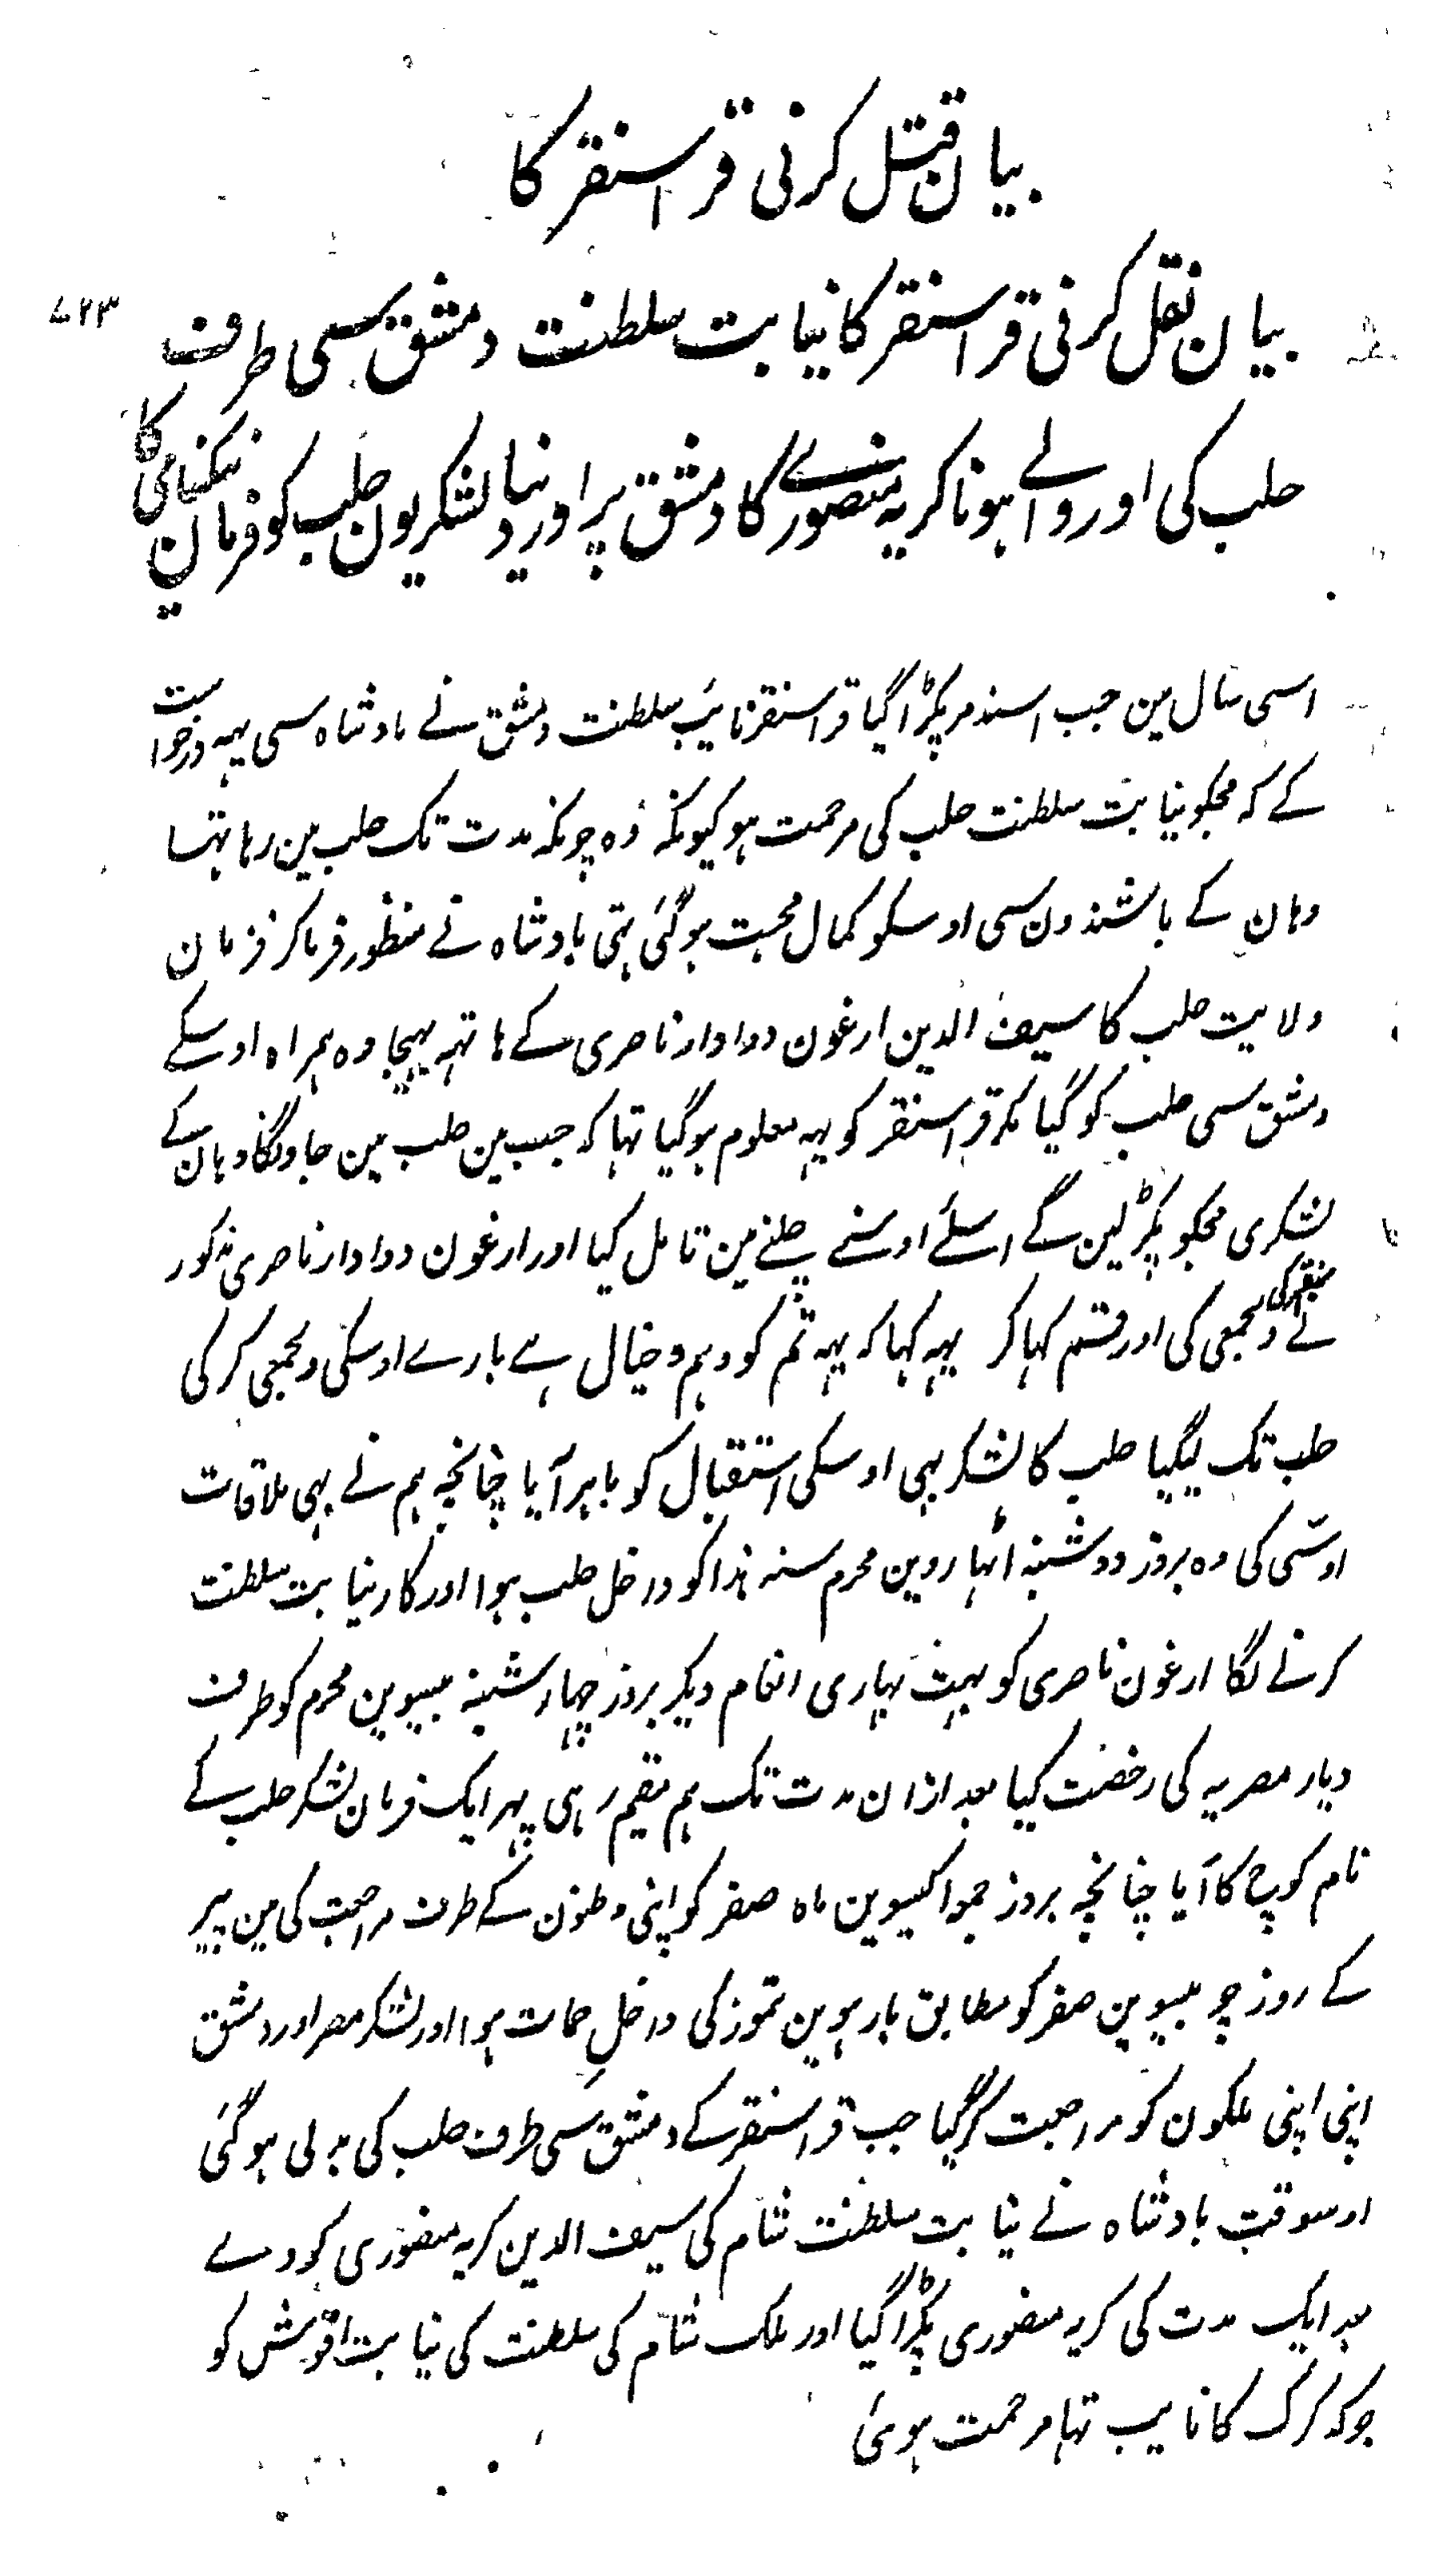 بیان قتل کرنی قراسنقر کا
۷۲۳
بیان نقل کرنی قراسنقر کا نیابت سلطنت دمشق سی طرف
حلب کی اور والے ہونا کریہ منصورے کا دمشق پر اور دینا لشکریون حلب کو فرمان نکلنیکا
اسی سال مین جب اسندمر پکڑا گیا قراسنقر نایٔب سلطنت دمشق نے بادشاہ سی یہہ درخواست
کے کہ مجکو نیابت سلطنت حلب کی مرحمت ہو کیونکہ وہ چونکہ مدت تک حلب مین رہا تہا
وہان کے باشندون سی اوسکو کمال محبت ہو گئی تہی بادشاہ نے منظور فرماکر فرمان
ولایت حلب کا سیف الدین ارغون دوادار ناصری کے ہاتہہ بہیجا وہ ہمراہ اوسکے
دمشق سی حلب کو گیا مگر قراسنقر کو یہہ معلوم ہو گیا تہا کہ جب مین حلب مین جاونگا وہان کے
لشکری مجکو پکڑ لین گے اسلئے اوسنے چلنے مین تامل کیا اور ارغون دوادار ناصری مذکور
نے دلجمعی کی اور قسم کہاکر یہہ کہا کہ یہہ تم کو وہم وخیال ہے بارے اوسکی دلجمعی کر کی
حلب تک لیگیا حلب کا لشکر بہی اوسکی استقبال کو باہر آیا چنانچہ ہم نے بہی ملاقات
اوسّی کی وہ بروز دوشنبہ اٹہاروین محرم سنہ ہذا کو داخل حلب ہوا اور کار نیابت سلطنت
کرنے لگا ارغون ناصری کو بہت بہاری انعام دیکر بروز چہارشنبہ بیسوین محرم کو طرف
دیار مصریہ کی رخصت کیا بعد ازان مدت تک ہم مقیم رہی پہر ایک فرمان لشکر حلب کے
نام کوچ کا آیا چنانچہ بروز جمعہ اکیسوین ماہ صفر کو اپنی وطنون کے طرف مراجعت کی مین پیر
کے روز چوبیسوین صفر کو مطابق بارہوین تموز کی داخلِ حمات ہوا اور لشکر مصر اور دمشق
اپنی اپنی ملکون کو مراجعت کر گیا جب قراسنقر کے دمشق سی طرف حلب کی بدلی ہو گئی
اوسوقت بادشاہ نے نیابت سلطنت شام کی سیف الدین کریہ منصوری کو دے
بعد ایک مدت کی کریہ منصوری پکڑا گیا اور ملک شام کی سلطنت کی نیابت اقوش کو
جو کہ کرک کا نایب تہا مرحمت ہوئی